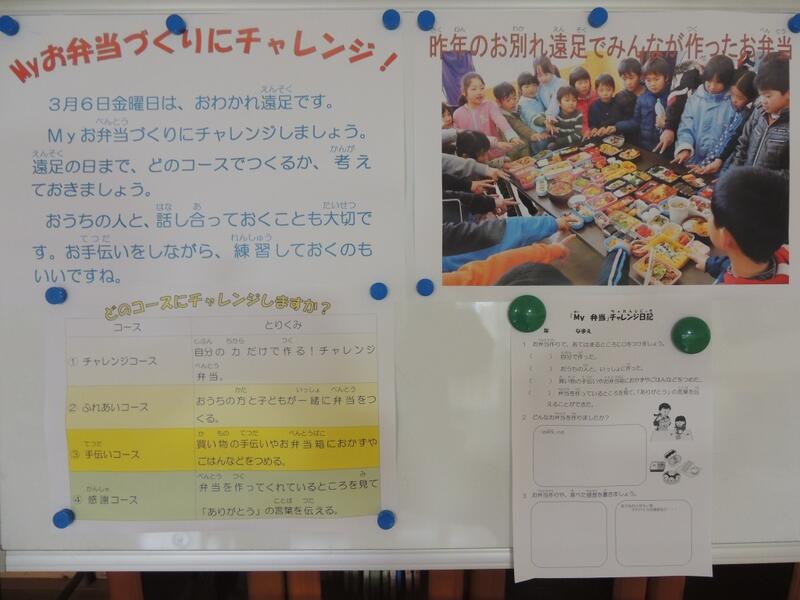 Myお弁当づくりにチャレンジ！
３月６日金曜日は、おわかれ遠足です。
Ｍｙお弁当づくりにチャレンジしましょう。
遠足の日まで、どのコースでつくるか、考え
ておきましょう。
おうちの人と、話し合っておくことも大切で
す。お手伝いをしながら、練習しておくのも
いいですね。
どのコースにチャレンジしますか？
コース　とりくみ
① チャレンジコース　自分の力だけで作る！チャレンジ
弁当。
② ふれあいコース　おうちの方と子どもが一緒に弁当をつ
くる。
③ 手伝いコース　買い物の手伝いやお弁当箱におかずや
ごはんなどをつめる。
④ 感謝コース　弁当を作ってくれているところを見て
「ありがとう」の言葉を伝える。
昨年のお別れ遠足でみんなが作ったお弁当
「My 弁当」チャレンジ日記
年　なまえ
１ お弁当作りで、あてはまるところに○をつけましょう。
（　）自分で作った。
（　）おうちの人と、いっしょに作った。
（　）買い物の手伝いやお弁当箱におかずやごはんなどをつめた。
（　）弁当を作っているところを見て、「ありがとう」の言葉を伝
えることができた。
２ どんなお弁当を作りましたか？
３ お弁当作りや、食べた感想を書きましょう。